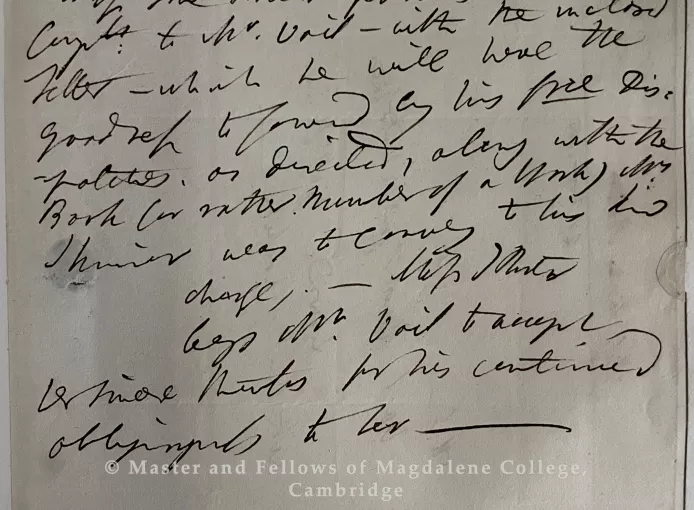 to Mr. Vail – with the inclosed
letter – which he will have the
goodness to forward by his free Dis=
=patches. as directed, along with the
Book (or rather Number of a Work) Mr.
was to convey to his kind
charge, –
begs Mr. Vail to accept
her sincere thanks for his continued
to her
© Master and Fellows of Magdalene College,
Cambridge